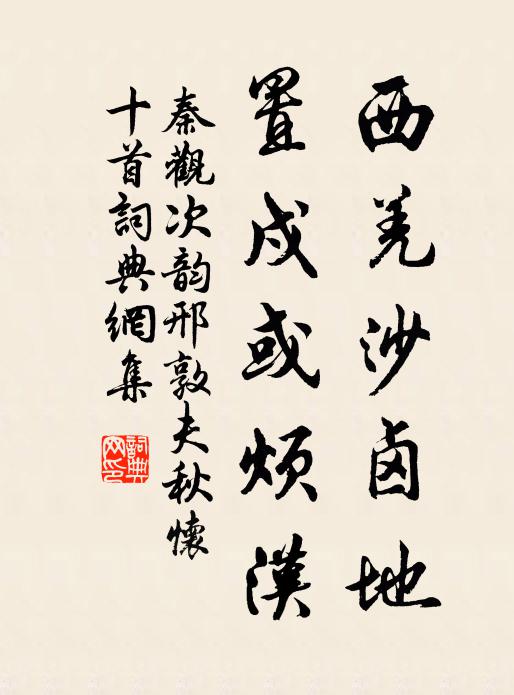 西羌沙卤地
置戍或烦漢
秦觀次韵邢敦夫秋懷
十首詞典網集
詞典网印